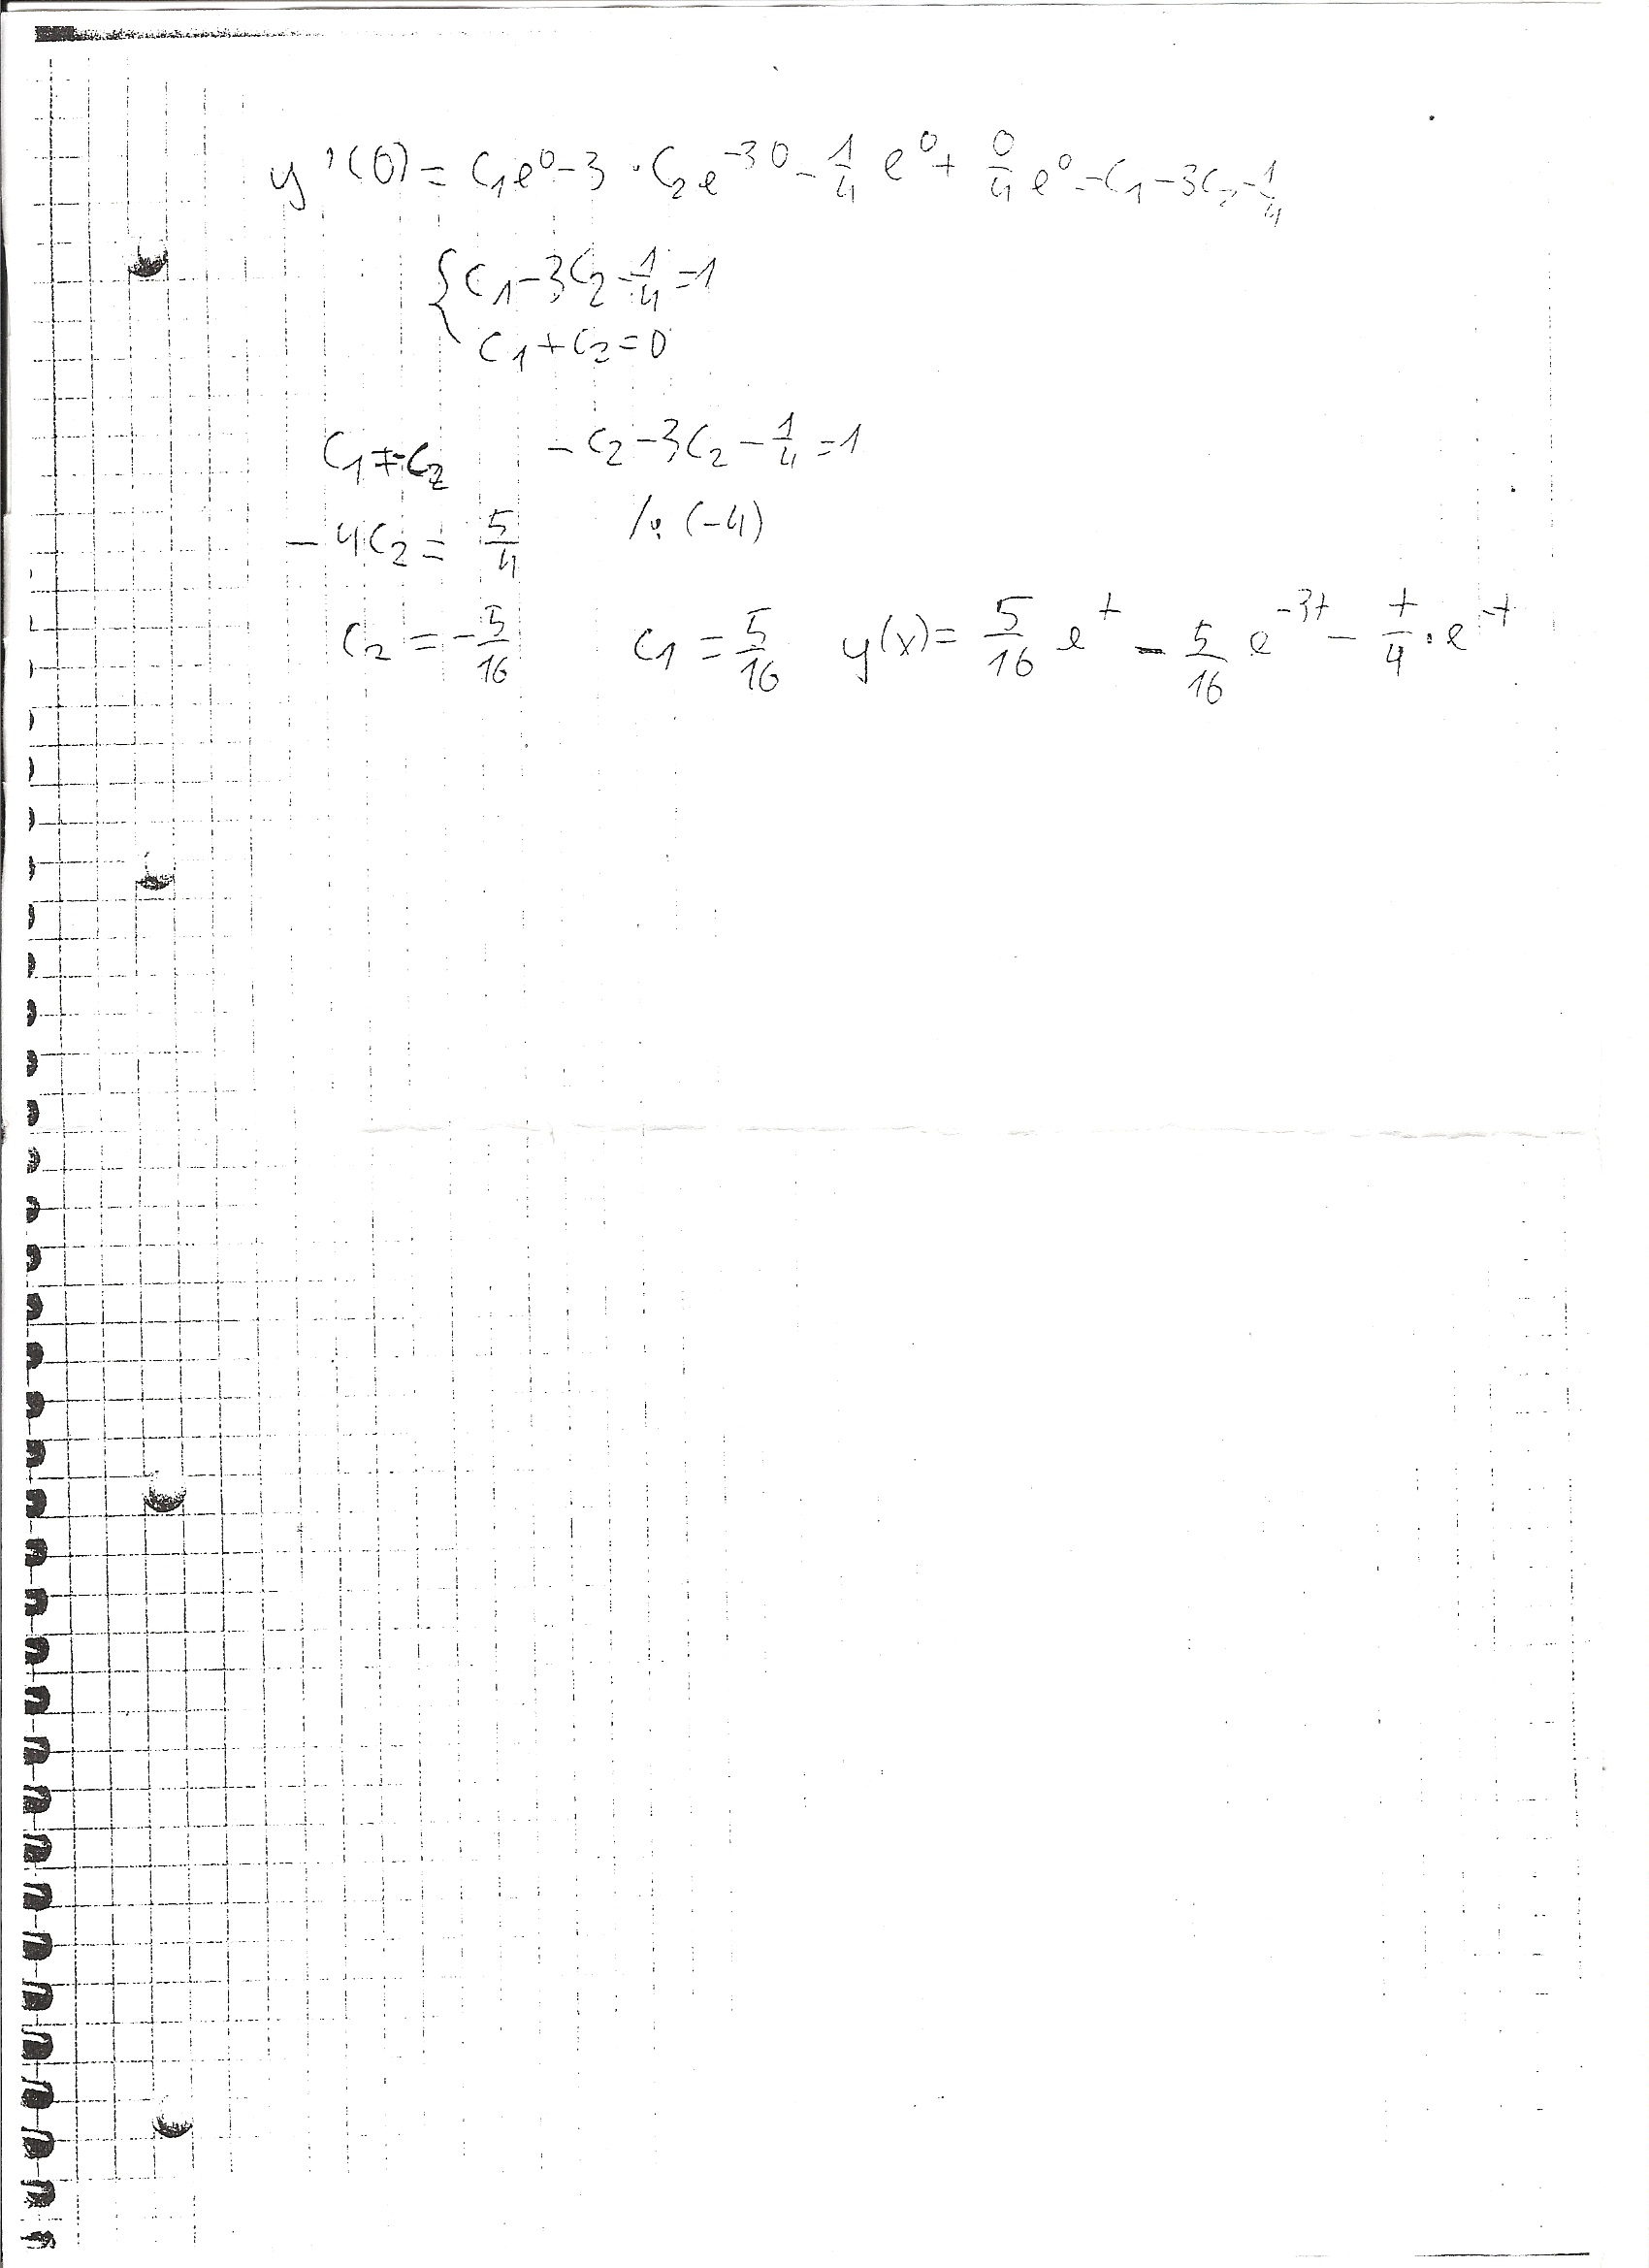 y'(0) = C₁e⁰ - 3 · C₂e⁻³⁰ - 1/4 e⁰ + 0/4 e⁰ = C₁ - 3C₂ - 1/4
{ C₁ - 3C₂ - 1/4 = 1
C₁ + C₂ = 0
C₁ = -C₂ - C₂ - 3C₂ - 1/4 = 1
- 4C₂ = 5/4 /: (-4)
C₂ = - 5/16 C₁ = 5/16 y(x) = 5/16 e^t - 5/16 e^-3t - t/4 · e^-t